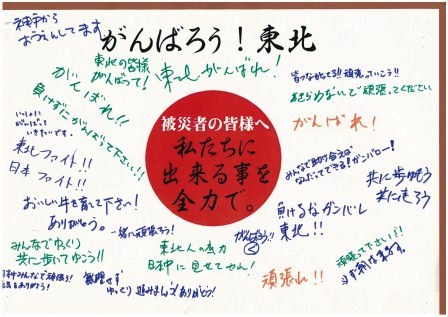 神戸から
おうえんしてます
がんばろう！東北
東北の皆様
がんばって！
東北がんばれ！
皆つながってる!!頑張っていこう!!
あきらめないで頑張ってください
がんばれ!!
負けずにがんばって下さい!!
がんばれ!
いっしょに
がんばって
いきたいです。
被災者の皆様へ
私たちに
出来る事を
全力で。
ファイト!!
日本ファイト!!
みんなで助け合えば
なんだってできる!ガンバロー!
共に歩もう
おいしい牛を育てて下さい!
ありがとう。
一緒に頑張ろう!
負けるなガンバレ
東北!!
みんなでゆっくり
共に歩いてゆこう!!
東北人の底力
日本中に見せてやん!
がんばろう!!
頑張って下さい!!
無理せず
ゆっくり進みましょう
ありがとう!
頑張れ!!